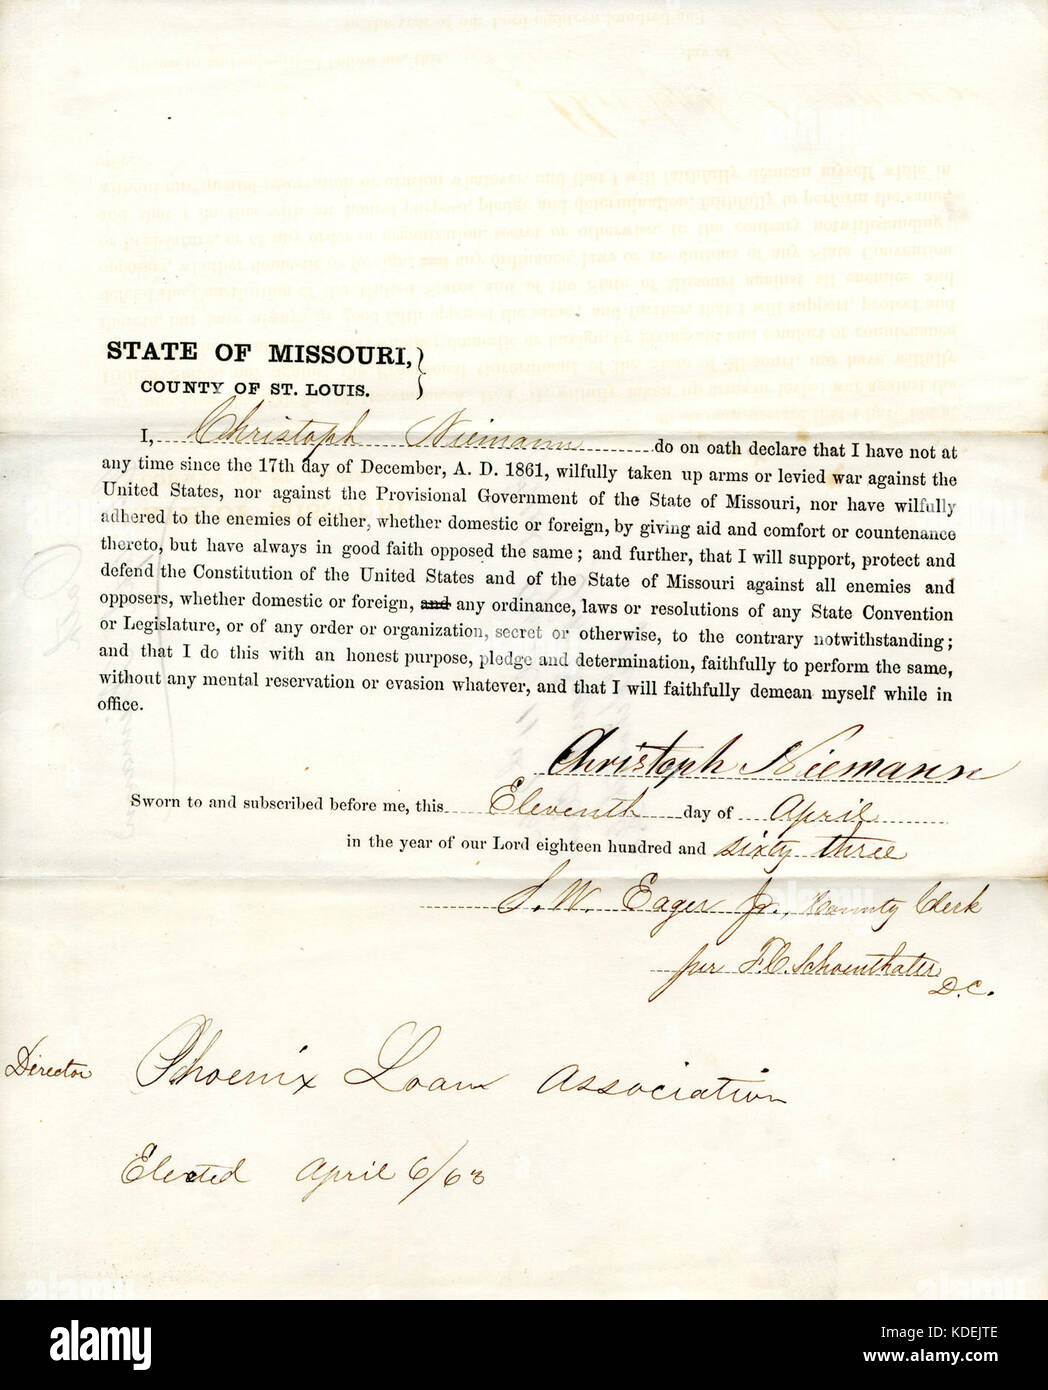 STATE OF MISSOURI,
COUNTY OF ST. LOUIS.
I, Christoph Niemann do on oath declare that I have not at
any time since the 17th day of December, A. D. 1861, wilfully taken up arms or levied war against the
United States, nor against the Provisional Government of the State of Missouri, nor have wilfully
adhered to the enemies of either, whether domestic or foreign, by giving aid and comfort or countenance
thereto, but have always in good faith opposed the same; and further, that I will support, protect and
defend the Constitution of the United States and of the State of Missouri against all enemies and
opposers, whether domestic or foreign, and any ordinance, laws or resolutions of any State Convention
or Legislature, or of any order or organization, secret or otherwise, to the contrary notwithstanding;
and that I do this with an honest purpose, pledge and determination, faithfully to perform the same,
without any mental reservation or evasion whatever, and that I will faithfully demean myself while in
office.
Christoph Niemann
Sworn to and subscribed before me, this Eleventh day of April
in the year of our Lord eighteen hundred and sixty three
S. W. Eager Jr., County Clerk
per F. C. Schoenthaler
D.C.
Director Phoenix Loan Association
Elected April 6/63
alamy
Image ID: KDEJTE
www.alamy.com